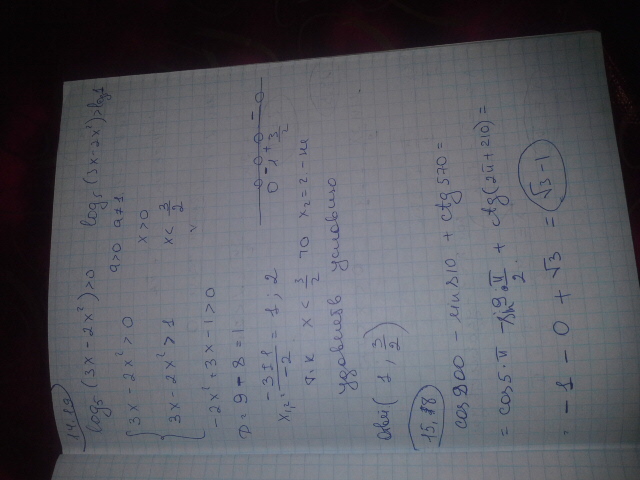 14.12
log₅(3x - 2x²) > 0 log₅(3x-2x²) > log₅1
{ 3x - 2x² > 0 a>0 a≠1
{ 3x - 2x² > 1 x > 0
x < 3/2
-2x² + 3x - 1 > 0
D = 9 - 8 = 1
x₁,₂ = (-3±1)/(-2) = 1; 2
0 1 + 3/2 -
т.к x < 3/2 то x₂ = 2 - не
удовлетв условию
Ответ (1, 3/2)
15.18
cos 900 - sin 810 + ctg 570 =
= cos 5·π - sin 9·π/2 + ctg(2π + 210) =
= -1 - 0 + √3 = √3 - 1